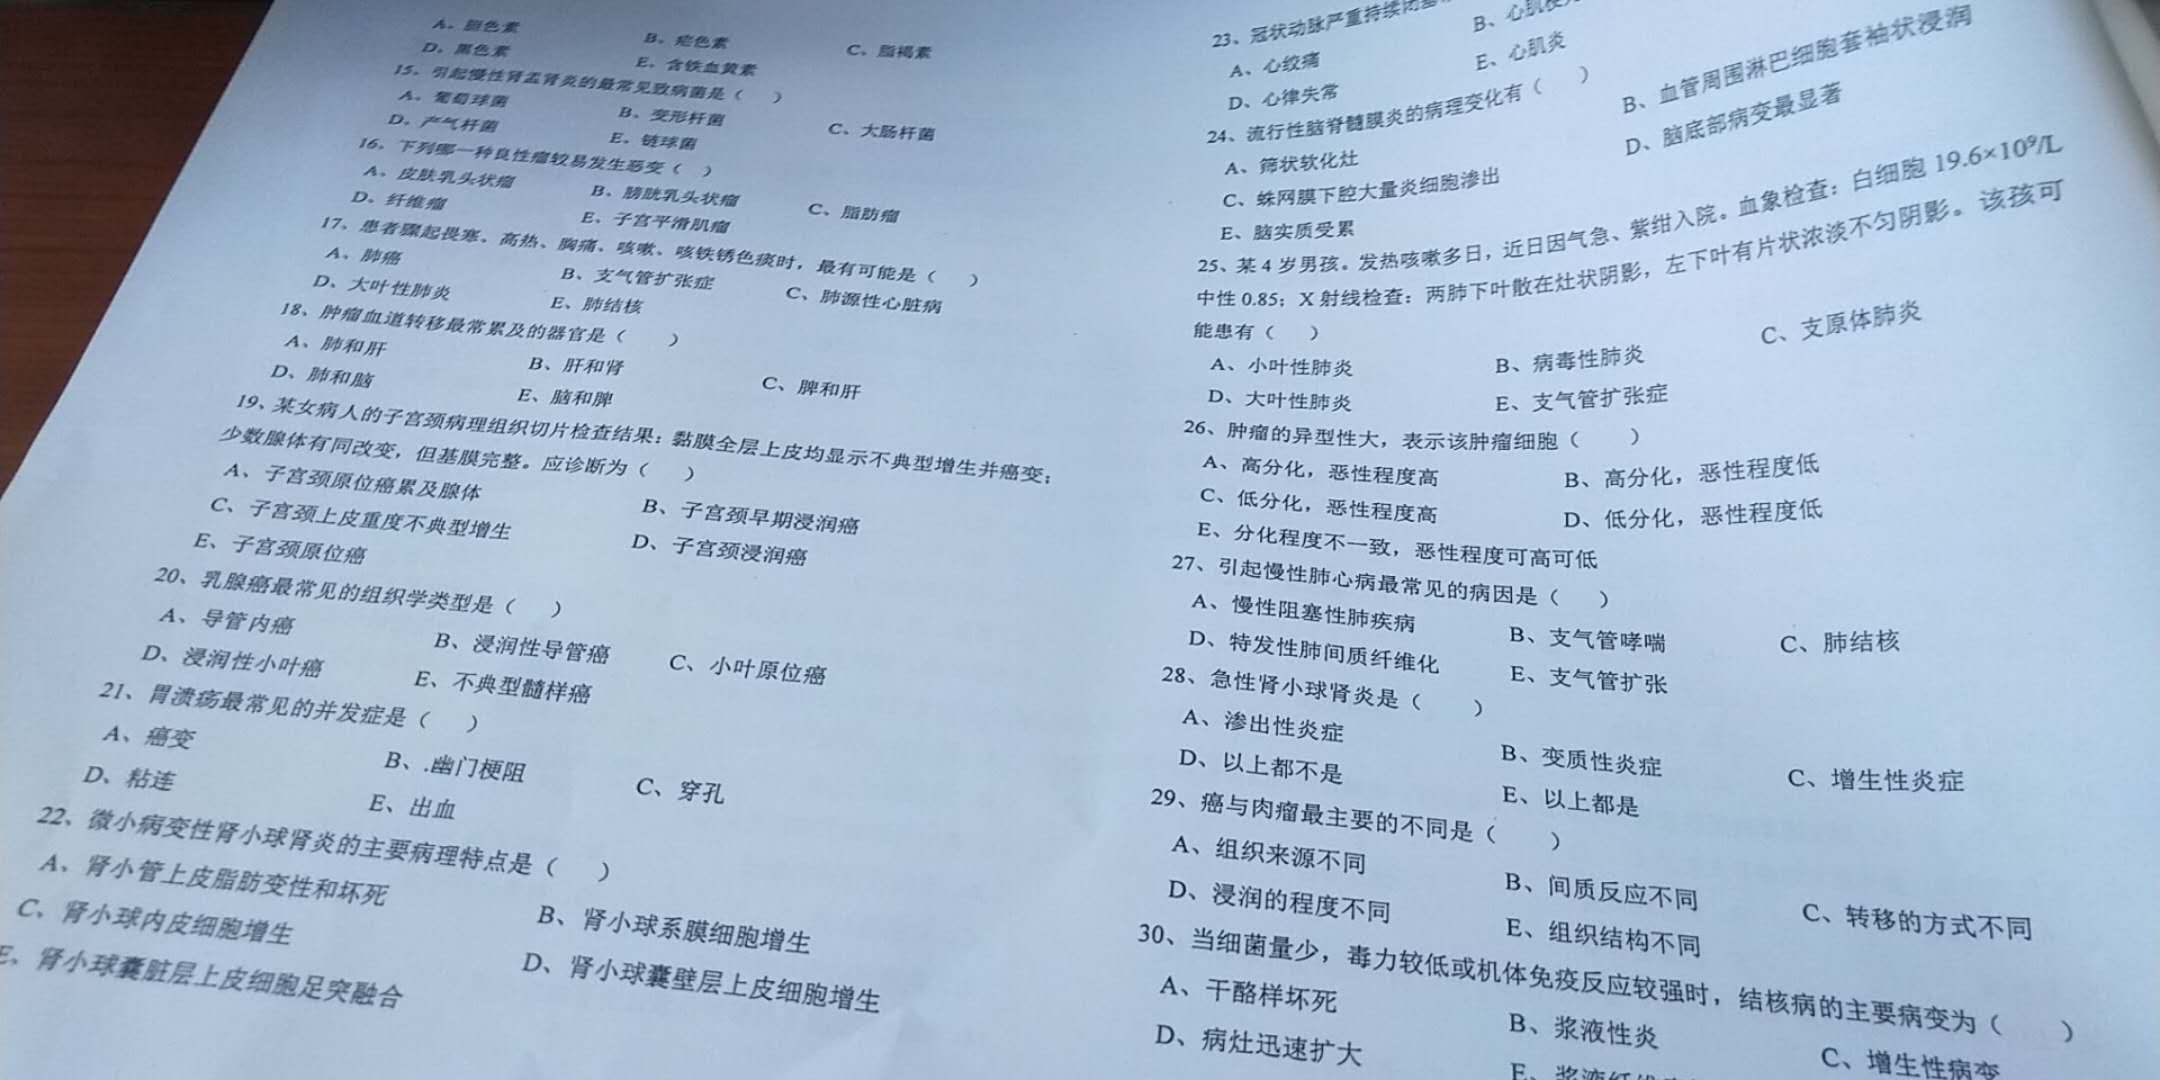 A、胆色素
B、疟色素
C、脂褐素
D、黑色素
E、含铁血黄素
15、引起慢性肾盂肾炎的最常见致病菌是（　）
A、葡萄球菌
B、变形杆菌
C、大肠杆菌
D、产气杆菌
E、链球菌
16、下列哪一种良性瘤较易发生恶变（　）
A、皮肤乳头状瘤
B、膀胱乳头状瘤
C、脂肪瘤
D、纤维瘤
E、子宫平滑肌瘤
17、患者骤起畏寒、高热、胸痛、咳嗽、咳铁锈色痰时，最有可能是（　）
A、肺癌
B、支气管扩张症
C、肺源性心脏病
D、大叶性肺炎
E、肺结核
18、肿瘤血道转移最常累及的器官是（　）
A、肺和肝
B、肝和肾
C、脾和肝
D、肺和脑
E、脑和脾
19、某女病人的子宫颈病理组织切片检查结果：黏膜全层上皮均显示不典型增生并癌变；
少数腺体有同改变，但基膜完整。应诊断为（　）
A、子宫颈原位癌累及腺体
B、子宫颈早期浸润癌
C、子宫颈上皮重度不典型增生
D、子宫颈浸润癌
E、子宫颈原位癌
20、乳腺癌最常见的组织学类型是（　）
A、导管内癌
B、浸润性导管癌
C、小叶原位癌
D、浸润性小叶癌
E、不典型髓样癌
21、胃溃疡最常见的并发症是（　）
A、癌变
B、.幽门梗阻
C、穿孔
D、粘连
E、出血
22、微小病变性肾小球肾炎的主要病理特点是（　）
A、肾小管上皮脂肪变性和坏死
B、肾小球系膜细胞增生
C、肾小球内皮细胞增生
D、肾小球囊壁层上皮细胞增生
E、肾小球囊脏层上皮细胞足突融合
23、冠状动脉严重持续闭
A、心绞痛
B、心肌
D、心律失常
E、心肌炎
24、流行性脑脊髓膜炎的病理变化有（　）
A、筛状软化灶
B、血管周围淋巴细胞套袖状浸润
C、蛛网膜下腔大量炎细胞渗出
D、脑底部病变最显著
E、脑实质受累
25、某 4 岁男孩。发热咳嗽多日，近日因气急、紫绀入院。血象检查：白细胞 19.6×10⁹/L
中性 0.85；X 射线检查：两肺下叶散在灶状阴影，左下叶有片状浓淡不匀阴影。该孩可
能患有（　）
A、小叶性肺炎
B、病毒性肺炎
C、支原体肺炎
D、大叶性肺炎
E、支气管扩张症
26、肿瘤的异型性大，表示该肿瘤细胞（　）
A、高分化，恶性程度高
B、高分化，恶性程度低
C、低分化，恶性程度高
D、低分化，恶性程度低
E、分化程度不一致，恶性程度可高可低
27、引起慢性肺心病最常见的病因是（　）
A、慢性阻塞性肺疾病
B、支气管哮喘
C、肺结核
D、特发性肺间质纤维化
E、支气管扩张
28、急性肾小球肾炎是（　）
A、渗出性炎症
B、变质性炎症
C、增生性炎症
D、以上都不是
E、以上都是
29、癌与肉瘤最主要的不同是（　）
A、组织来源不同
B、间质反应不同
C、转移的方式不同
D、浸润的程度不同
E、组织结构不同
30、当细菌量少，毒力较低或机体免疫反应较强时，结核病的主要病变为（　）
A、干酪样坏死
B、浆液性炎
C、增生性病变
D、病灶迅速扩大